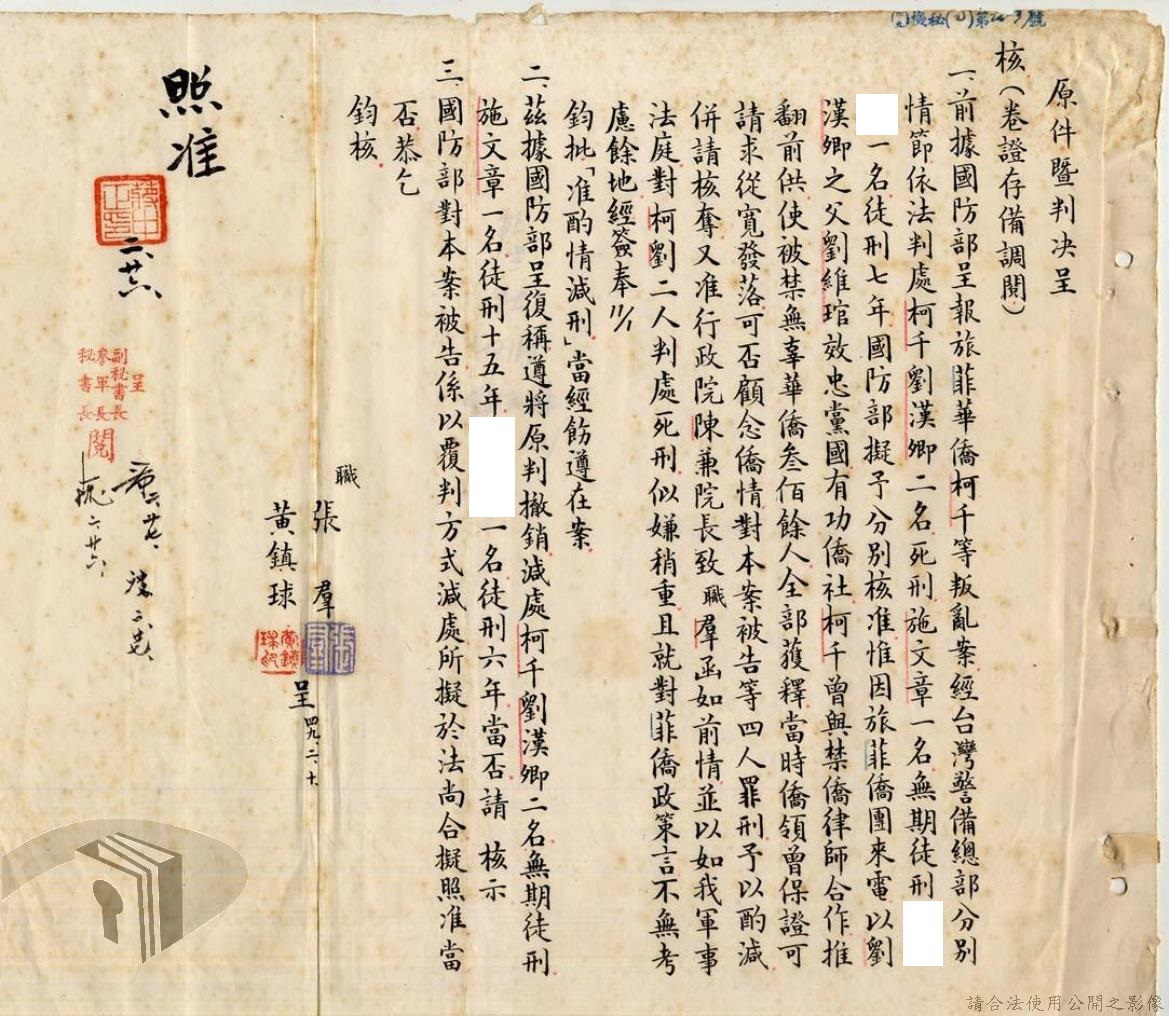 原件暨判決呈
核（卷證存備調閱）
一、前據國防部呈報旅菲華僑柯千等叛亂案經台灣警備總部分別
情節依法判處柯千劉漢卿二名死刑施文章一名無期徒刑
一名徒刑七年國防部擬予分別核准惟因旅菲僑團來電以劉
漢卿之父劉維琯效忠黨國有功僑社柯千曾與禁僑律師合作推
翻前供使被禁無辜華僑叁佰餘人全部獲釋當時僑領曾保證可
請求從寬發落可否顧念僑情對本案被告等四人罪刑予以酌減
併請核奪又准行政院陳兼院長致職羣函如前情並以如我軍事
法庭對柯劉二人判處死刑似嫌稍重且就對菲僑政策言不無考
慮餘地經簽奉
鈞批「准酌情減刑」當經飭遵在案
二、茲據國防部呈復稱遵將原判撤銷減處柯千劉漢卿二名無期徒刑
施文章一名徒刑十五年 一名徒刑六年當否請 核示
三、國防部對本案被告係以覆判方式減處所擬於法尚合擬照准當
否恭乞
鈞核
職 張羣
黃鎮球
呈 四九、二、十、
照准
蔣中正印
二、廿六
呈
副秘書長
參軍長
秘書長
閱
請合法使用公開之影像